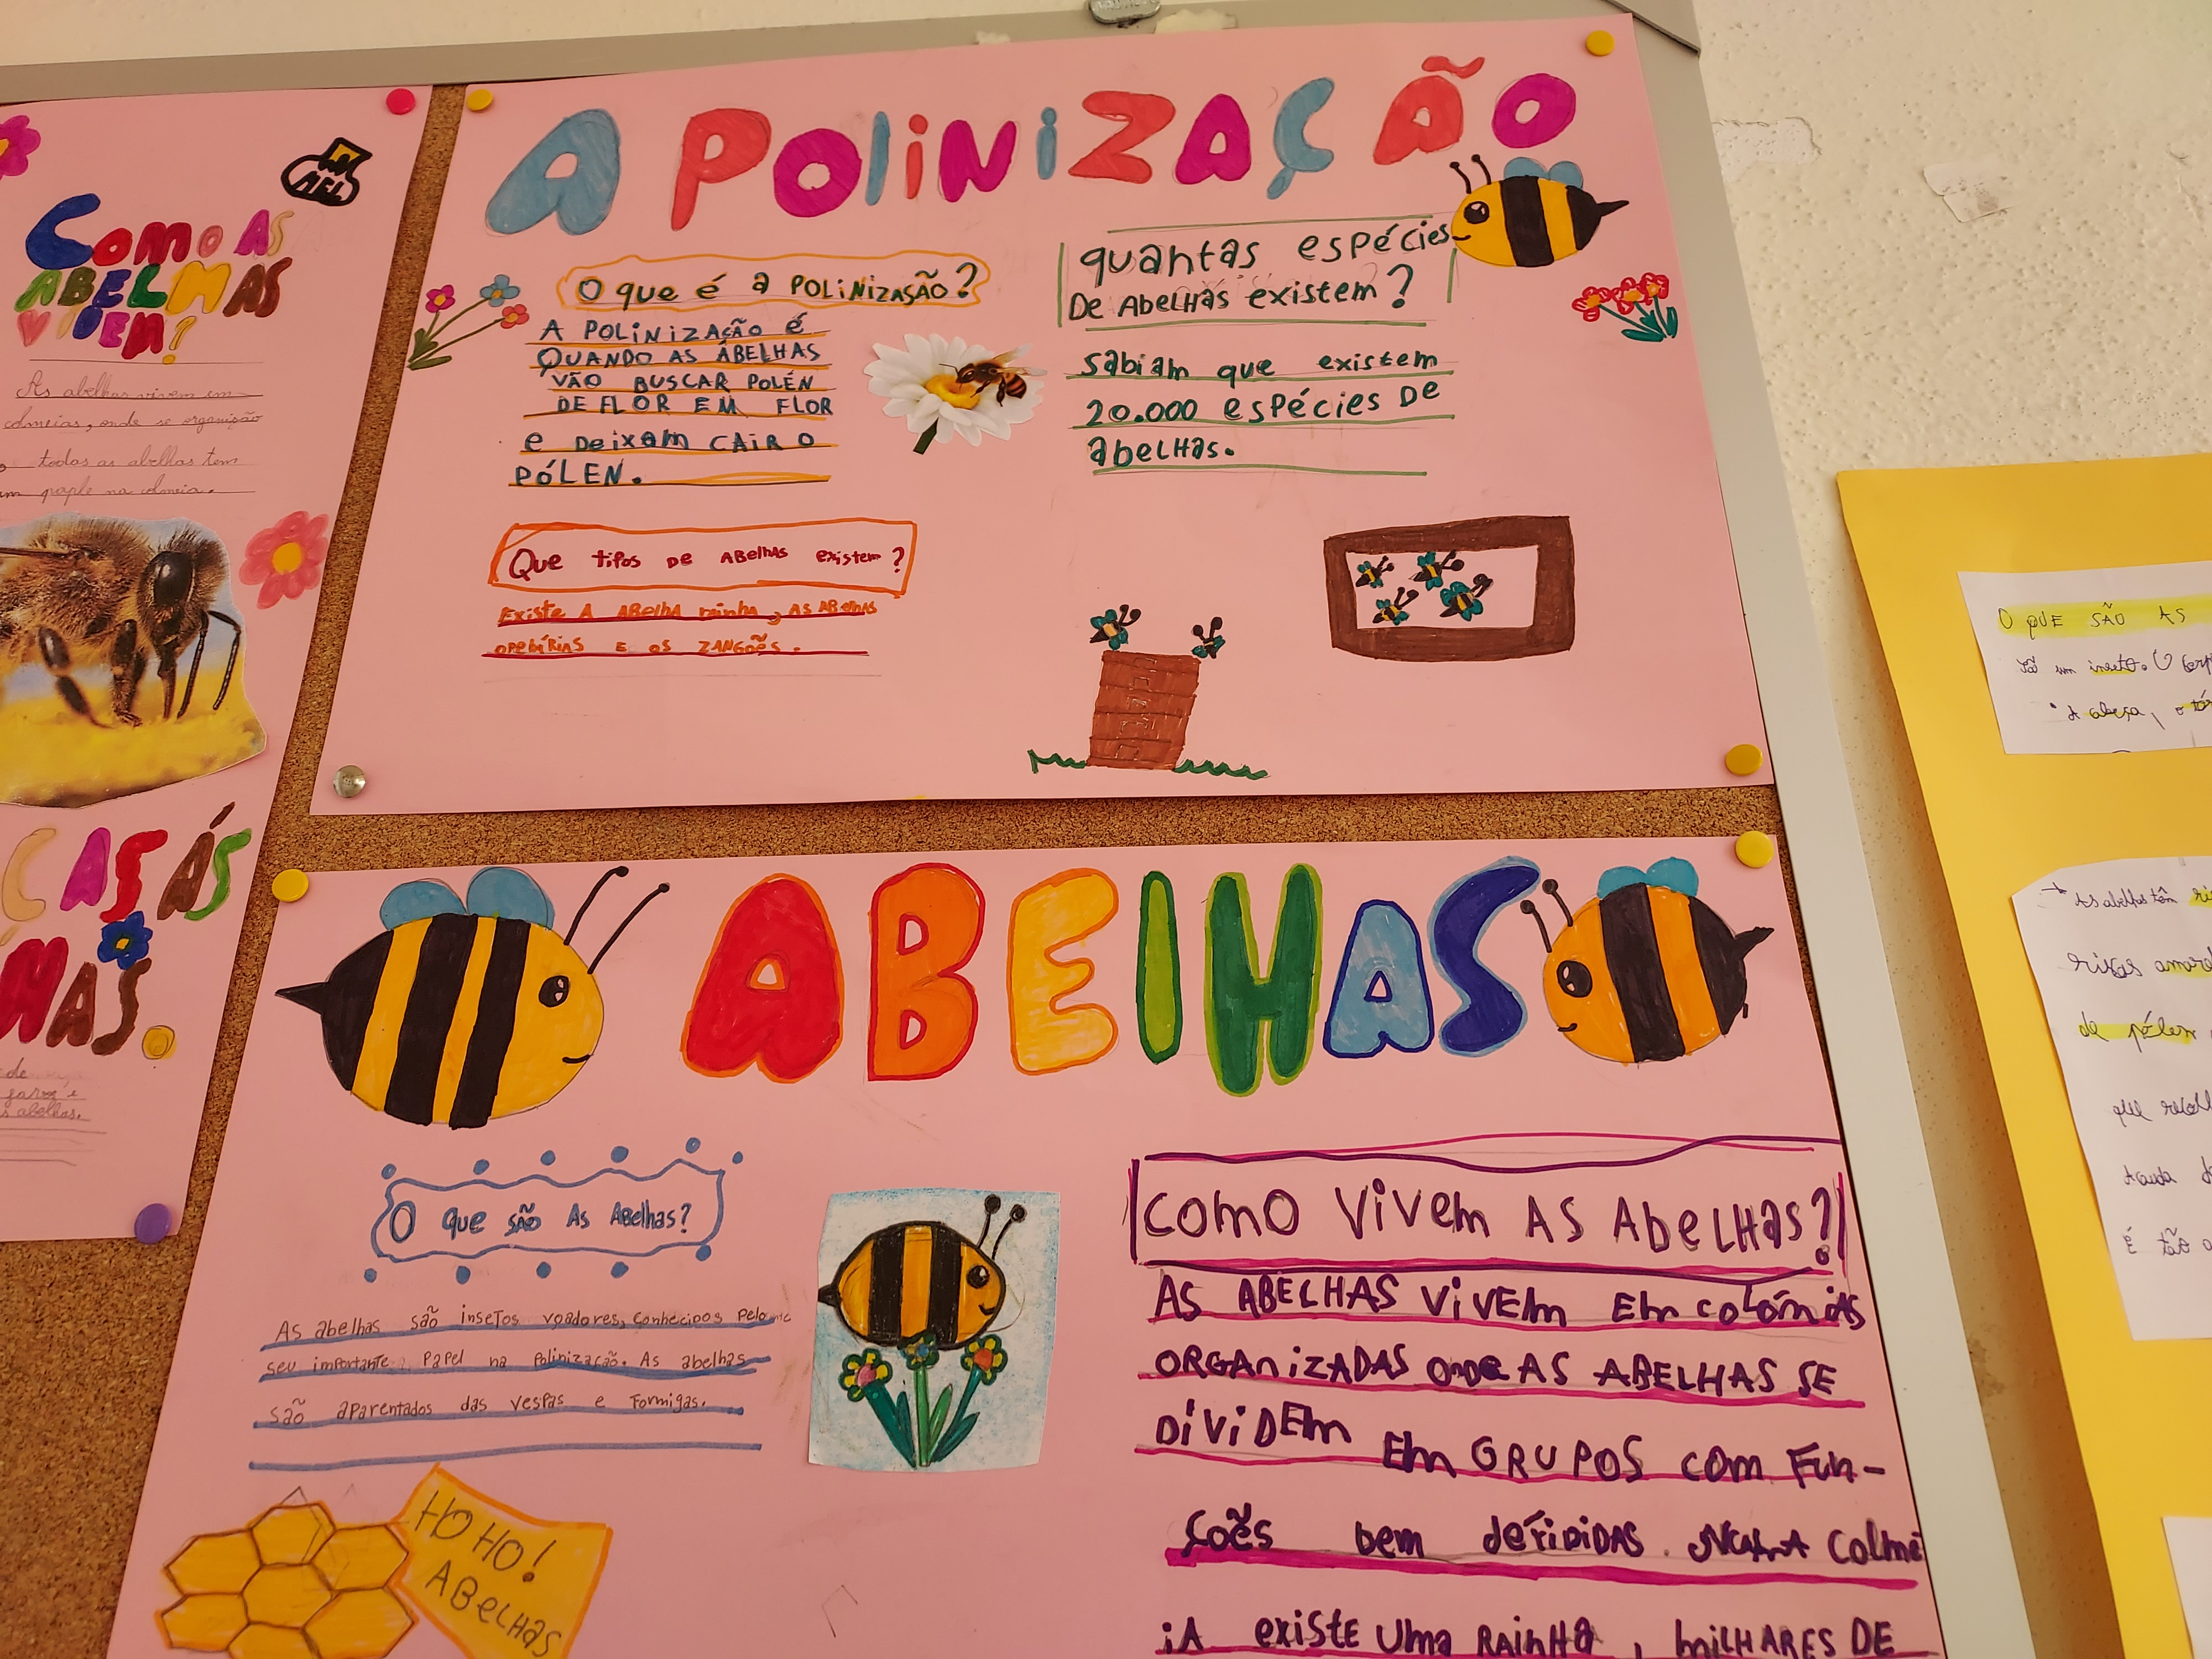 MEL
COMO AS
ABELHAS
VIVEM!
As abelhas vivem em
colmeias, onde se organizão
todas as abelhas tem
paple na colmeia.
CAS ÁS
HAS.
de
abelhas.
A POLINIZAÇÃO
O que é a POLINIZASÃO?
A POLINIZAÇÃO É
QUANDO AS ÁBELHAS
VÃO BUSCAR POLÉN
DE FLOR EM FLOR
e DeixAm CAIR O
PÓLEN.
quantas espécies
De Abelhas existem?
Sabiam que existem
20.000 espécies De
abelhas.
Que tipos De Abelhas existem?
Existe A Abelha rainha, As Abelhas
E os ZANGÕES.
ABElHAS
O que são As Abelhas?
As abelhas são insetos voadores, conhecidos pelo
seu importante papel na polinização. As abelhas
são aparentados das vespas e formigas.
HO HO!
ABELHAS
Como vivem As AbeLHas?
AS ABELHAS VIVEm Em colónias
ORGANIZADAS onde AS ABELHAS SE
DIVIDEm Em GRUPOS com Fun-
ções bem deFiniDAS. Numa Colme
iA existe Uma RAinHa, milHARES DE
O QUE SÃO AS
São um inseto. O
• A cabeça, o
→ As abelhas têm
riscas
de pólen
que
É tão